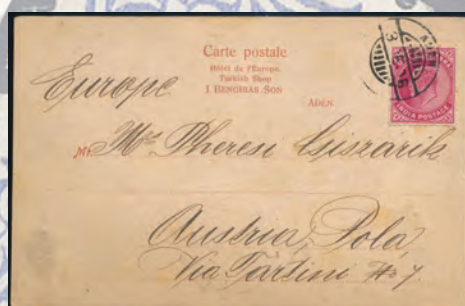 Carte postale
Hôtel de l'Europe.
Turkish Shop
J. BENGHIAS. SON
ADEN
Europe
ADEN
INDIA POSTAGE
Mrs Theresi Ciszarik
Austria, Pola
Via Tartini No 7.